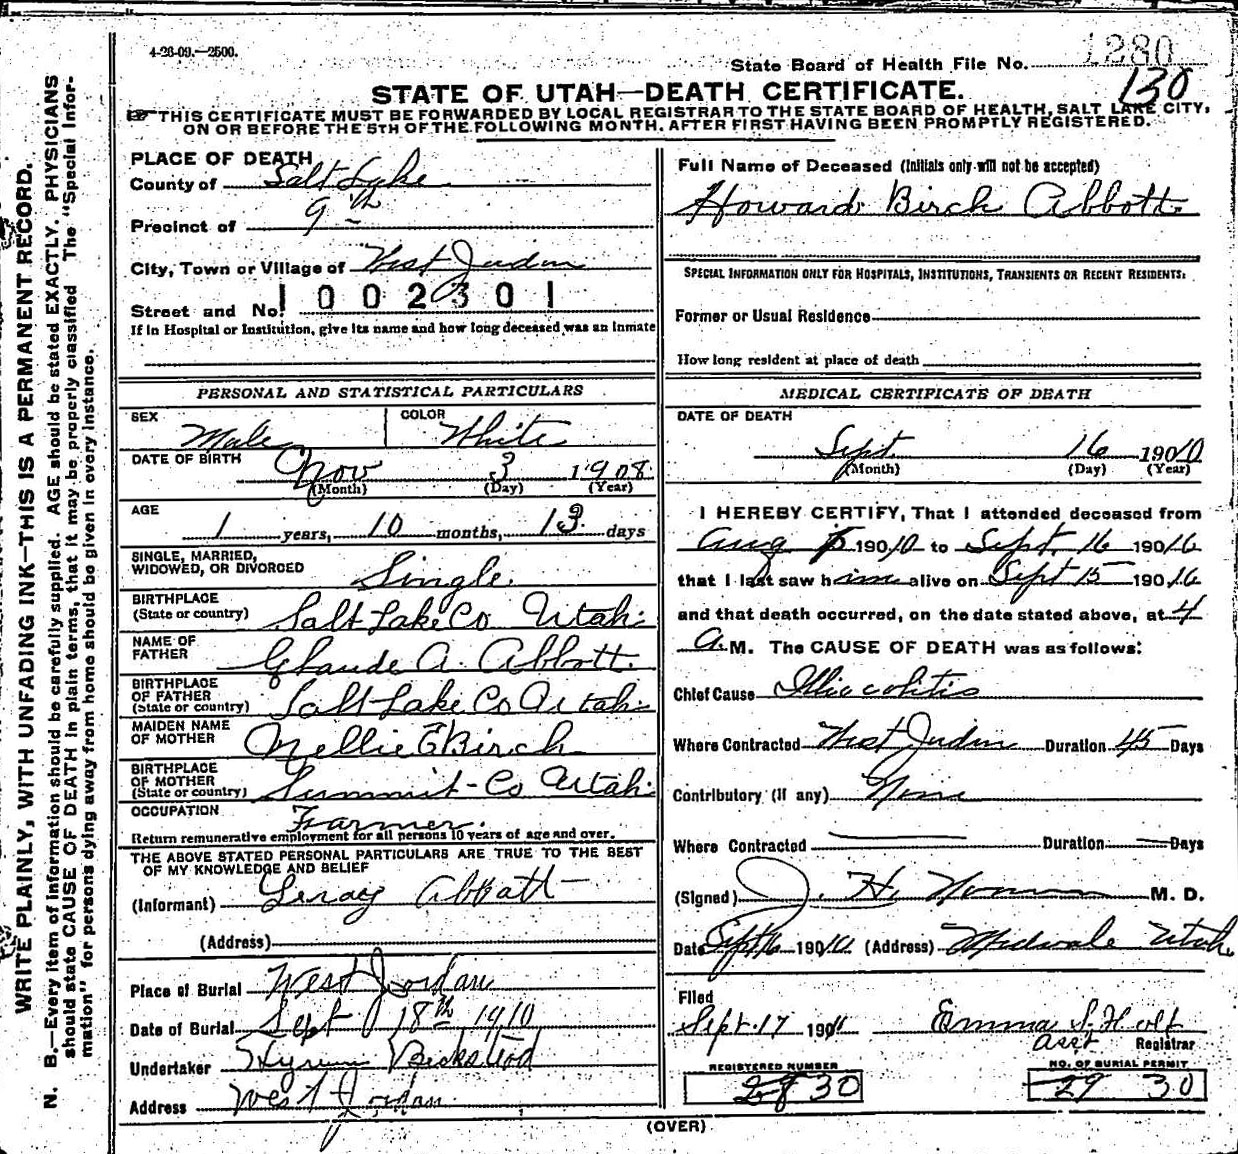 4-26-09.—2500.
1280
State Board of Health File No.
130
STATE OF UTAH—DEATH CERTIFICATE.
☞ THIS CERTIFICATE MUST BE FORWARDED BY LOCAL REGISTRAR TO THE STATE BOARD OF HEALTH, SALT LAKE CITY,
ON OR BEFORE THE 5TH OF THE FOLLOWING MONTH, AFTER FIRST HAVING BEEN PROMPTLY REGISTERED.
WRITE PLAINLY, WITH UNFADING INK—THIS IS A PERMANENT RECORD.
N. B.—Every item of information should be carefully supplied. AGE should be stated EXACTLY. PHYSICIANS
should state CAUSE OF DEATH in plain terms, that it may be properly classified The "Special Infor-
mation" for persons dying away from home should be given in every instance.
PLACE OF DEATH
County of Salt Lake
Precinct of 9th
City, Town or Village of West Jordan
Street and No. 1002301
If in Hospital or Institution, give its name and how long deceased was an inmate
PERSONAL AND STATISTICAL PARTICULARS
SEX Male COLOR White
DATE OF BIRTH Nov 3 1908
(Month) (Day) (Year)
AGE 1 years, 10 months, 13 days
SINGLE, MARRIED,
WIDOWED, OR DIVORCED Single.
BIRTHPLACE
(State or country) Salt Lake Co Utah
NAME OF
FATHER Claude A. Abbott.
BIRTHPLACE
OF FATHER
(State or country) Salt Lake Co Utah
MAIDEN NAME
OF MOTHER Nellie E Birch
BIRTHPLACE
OF MOTHER
(State or country) Summit-Co Utah
OCCUPATION Farmer.
Return remunerative employment for all persons 10 years of age and over.
THE ABOVE STATED PERSONAL PARTICULARS ARE TRUE TO THE BEST
OF MY KNOWLEDGE AND BELIEF
(Informant) Leroy Abbott
(Address)
Place of Burial West Jordan
Date of Burial Sept 18th, 1910
Undertaker Hyrum Beckstead
Address West Jordan
Full Name of Deceased (Initials only will not be accepted)
Howard Birch Abbott
SPECIAL INFORMATION ONLY FOR HOSPITALS, INSTITUTIONS, TRANSIENTS OR RECENT RESIDENTS:
Former or Usual Residence
How long resident at place of death
MEDICAL CERTIFICATE OF DEATH
DATE OF DEATH
Sept. 16 19010
(Month) (Day) (Year)
I HEREBY CERTIFY, That I attended deceased from
Aug 19010 to Sept. 16 19010
that I last saw him alive on Sept 15 19010
and that death occurred, on the date stated above, at 4
A. M. The CAUSE OF DEATH was as follows:
Chief Cause Illiocolitis
Where Contracted West Jordan Duration 45 Days
Contributory (if any) None
Where Contracted Duration Days
(Signed) J. H. M. D.
Date Sept 16 19010 (Address) Midvale Utah
Filed
Sept. 17 190 Emma S. Holt
Asst Registrar
REGISTERED NUMBER
28 30
NO. OF BURIAL PERMIT
29 30
(OVER)